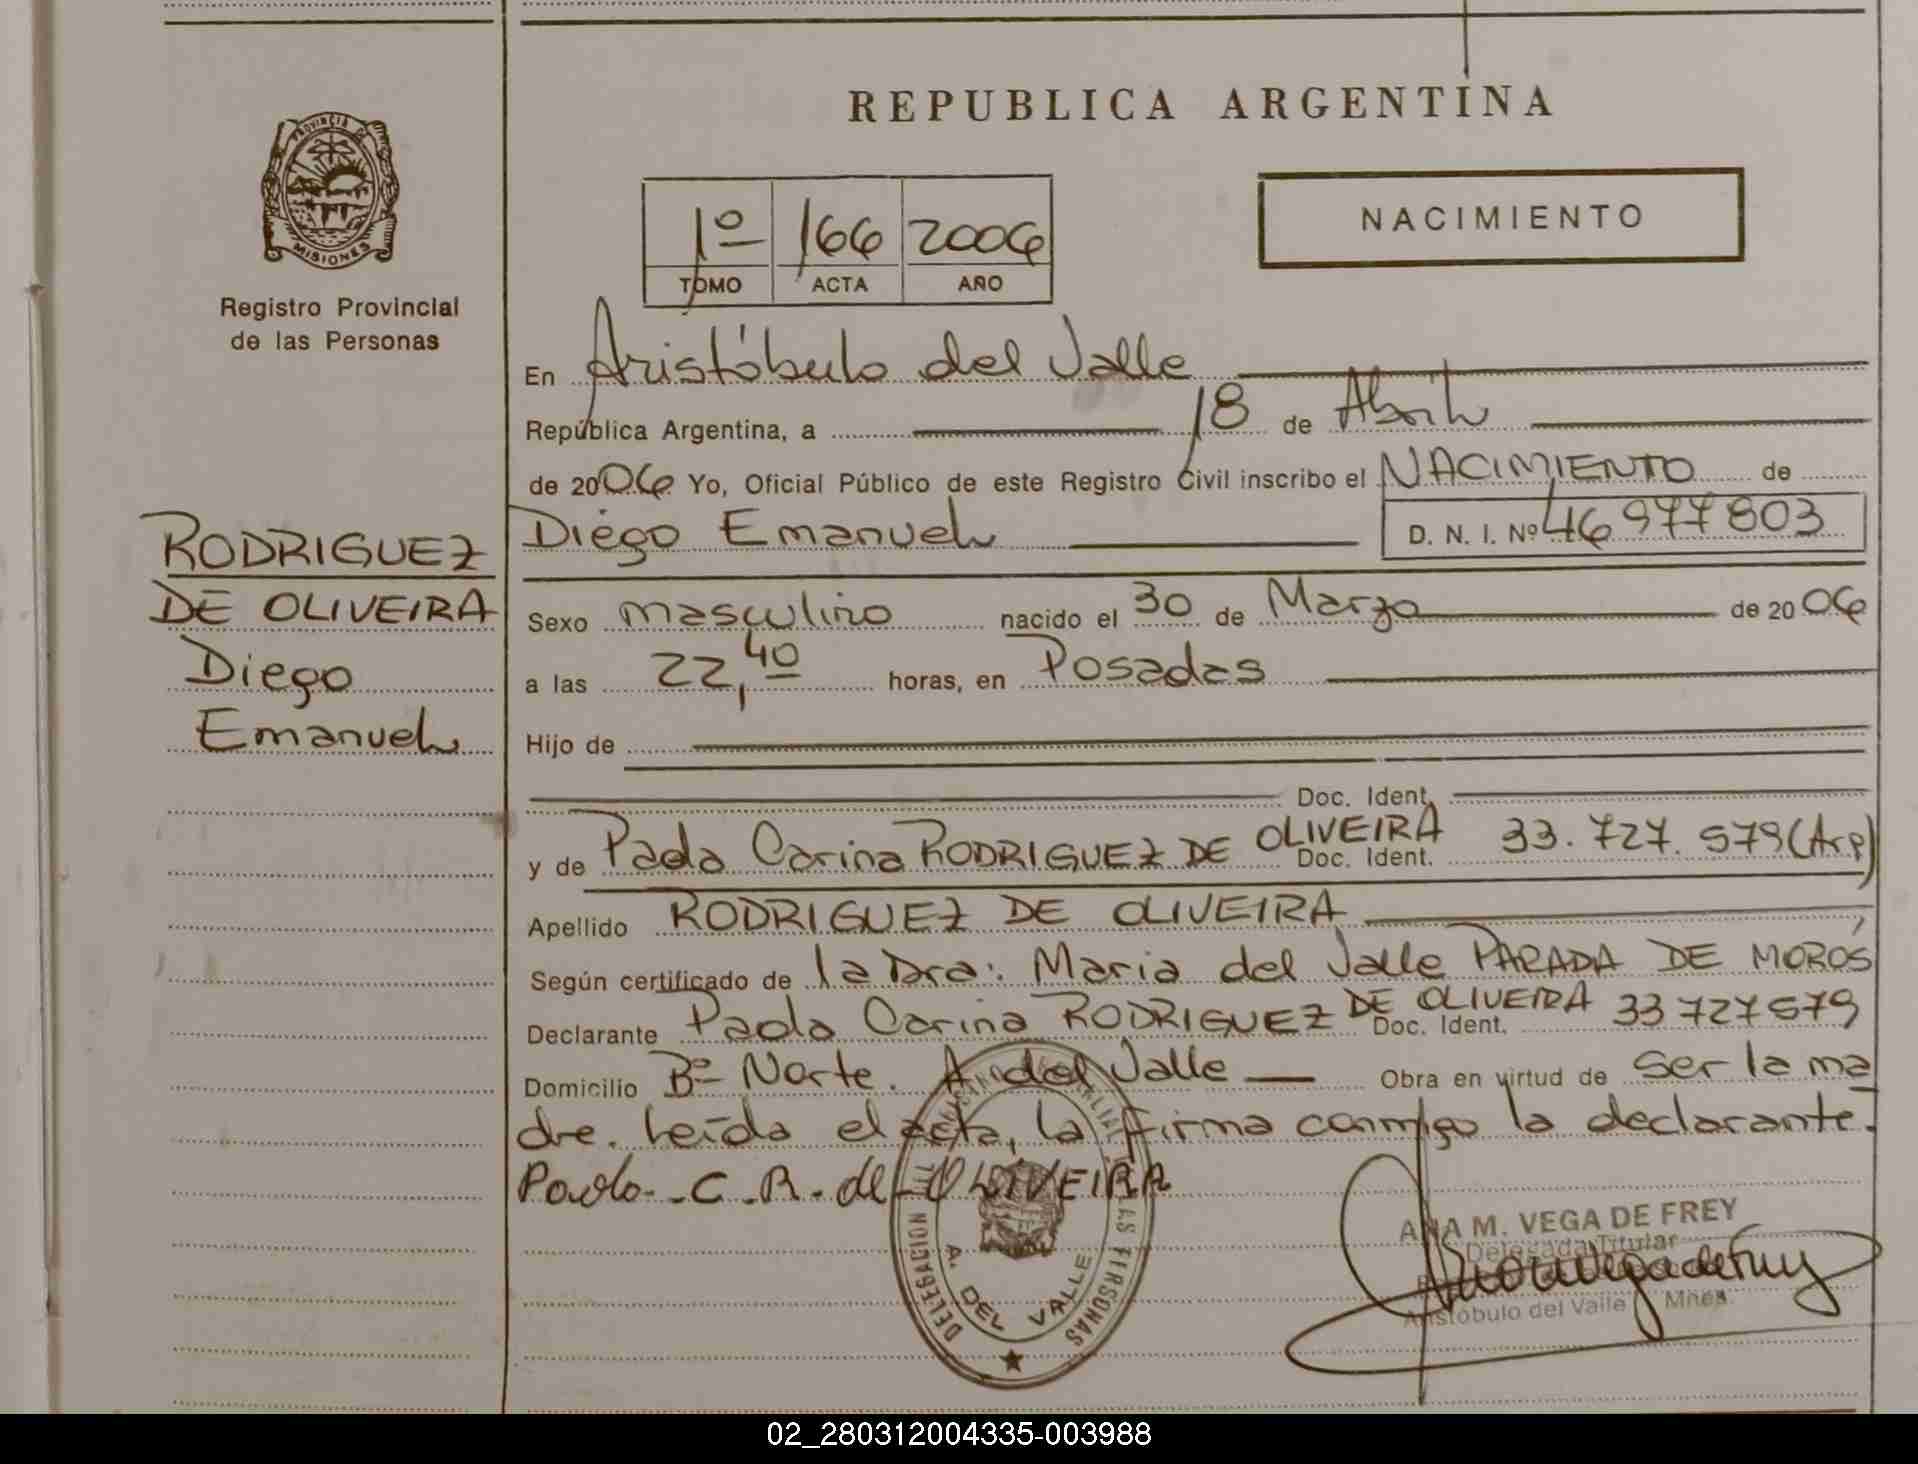 REPUBLICA ARGENTINA
PROVINCIA DE
MISIONES
Registro Provincial
de las Personas
1º 166 2006
TOMO ACTA AÑO
NACIMIENTO
En Aristóbulo del Valle
República Argentina, a 18 de Abril
de 2006 Yo, Oficial Público de este Registro Civil inscribo el NACIMIENTO de
Diego Emanuel D. N. I. Nº 46977803
RODRIGUEZ
DE OLIVEIRA
Diego
Emanuel
Sexo masculino nacido el 30 de Marzo de 2006
a las 22,40 horas, en Posadas
Hijo de
Doc. Ident.
y de Paola Carina RODRIGUEZ DE OLIVEIRA Doc. Ident. 33.727.579 (Arg)
Apellido RODRIGUEZ DE OLIVEIRA
Según certificado de la Dra: Maria del Valle PARADA DE MOROS
Declarante Paola Carina RODRIGUEZ DE OLIVEIRA Doc. Ident. 33727579
Domicilio Bº Norte. A. del Valle Obra en virtud de ser la ma
dre. Leída el acta, la firma conmigo la declarante.
Paola C. R. de OLIVEIRA
DELEGACION
LAS PERSONAS
A. DEL VALLE
ANA M. VEGA DE FREY
Delegada Titular
Aristóbulo del Valle Mnes.
02_280312004335-003988